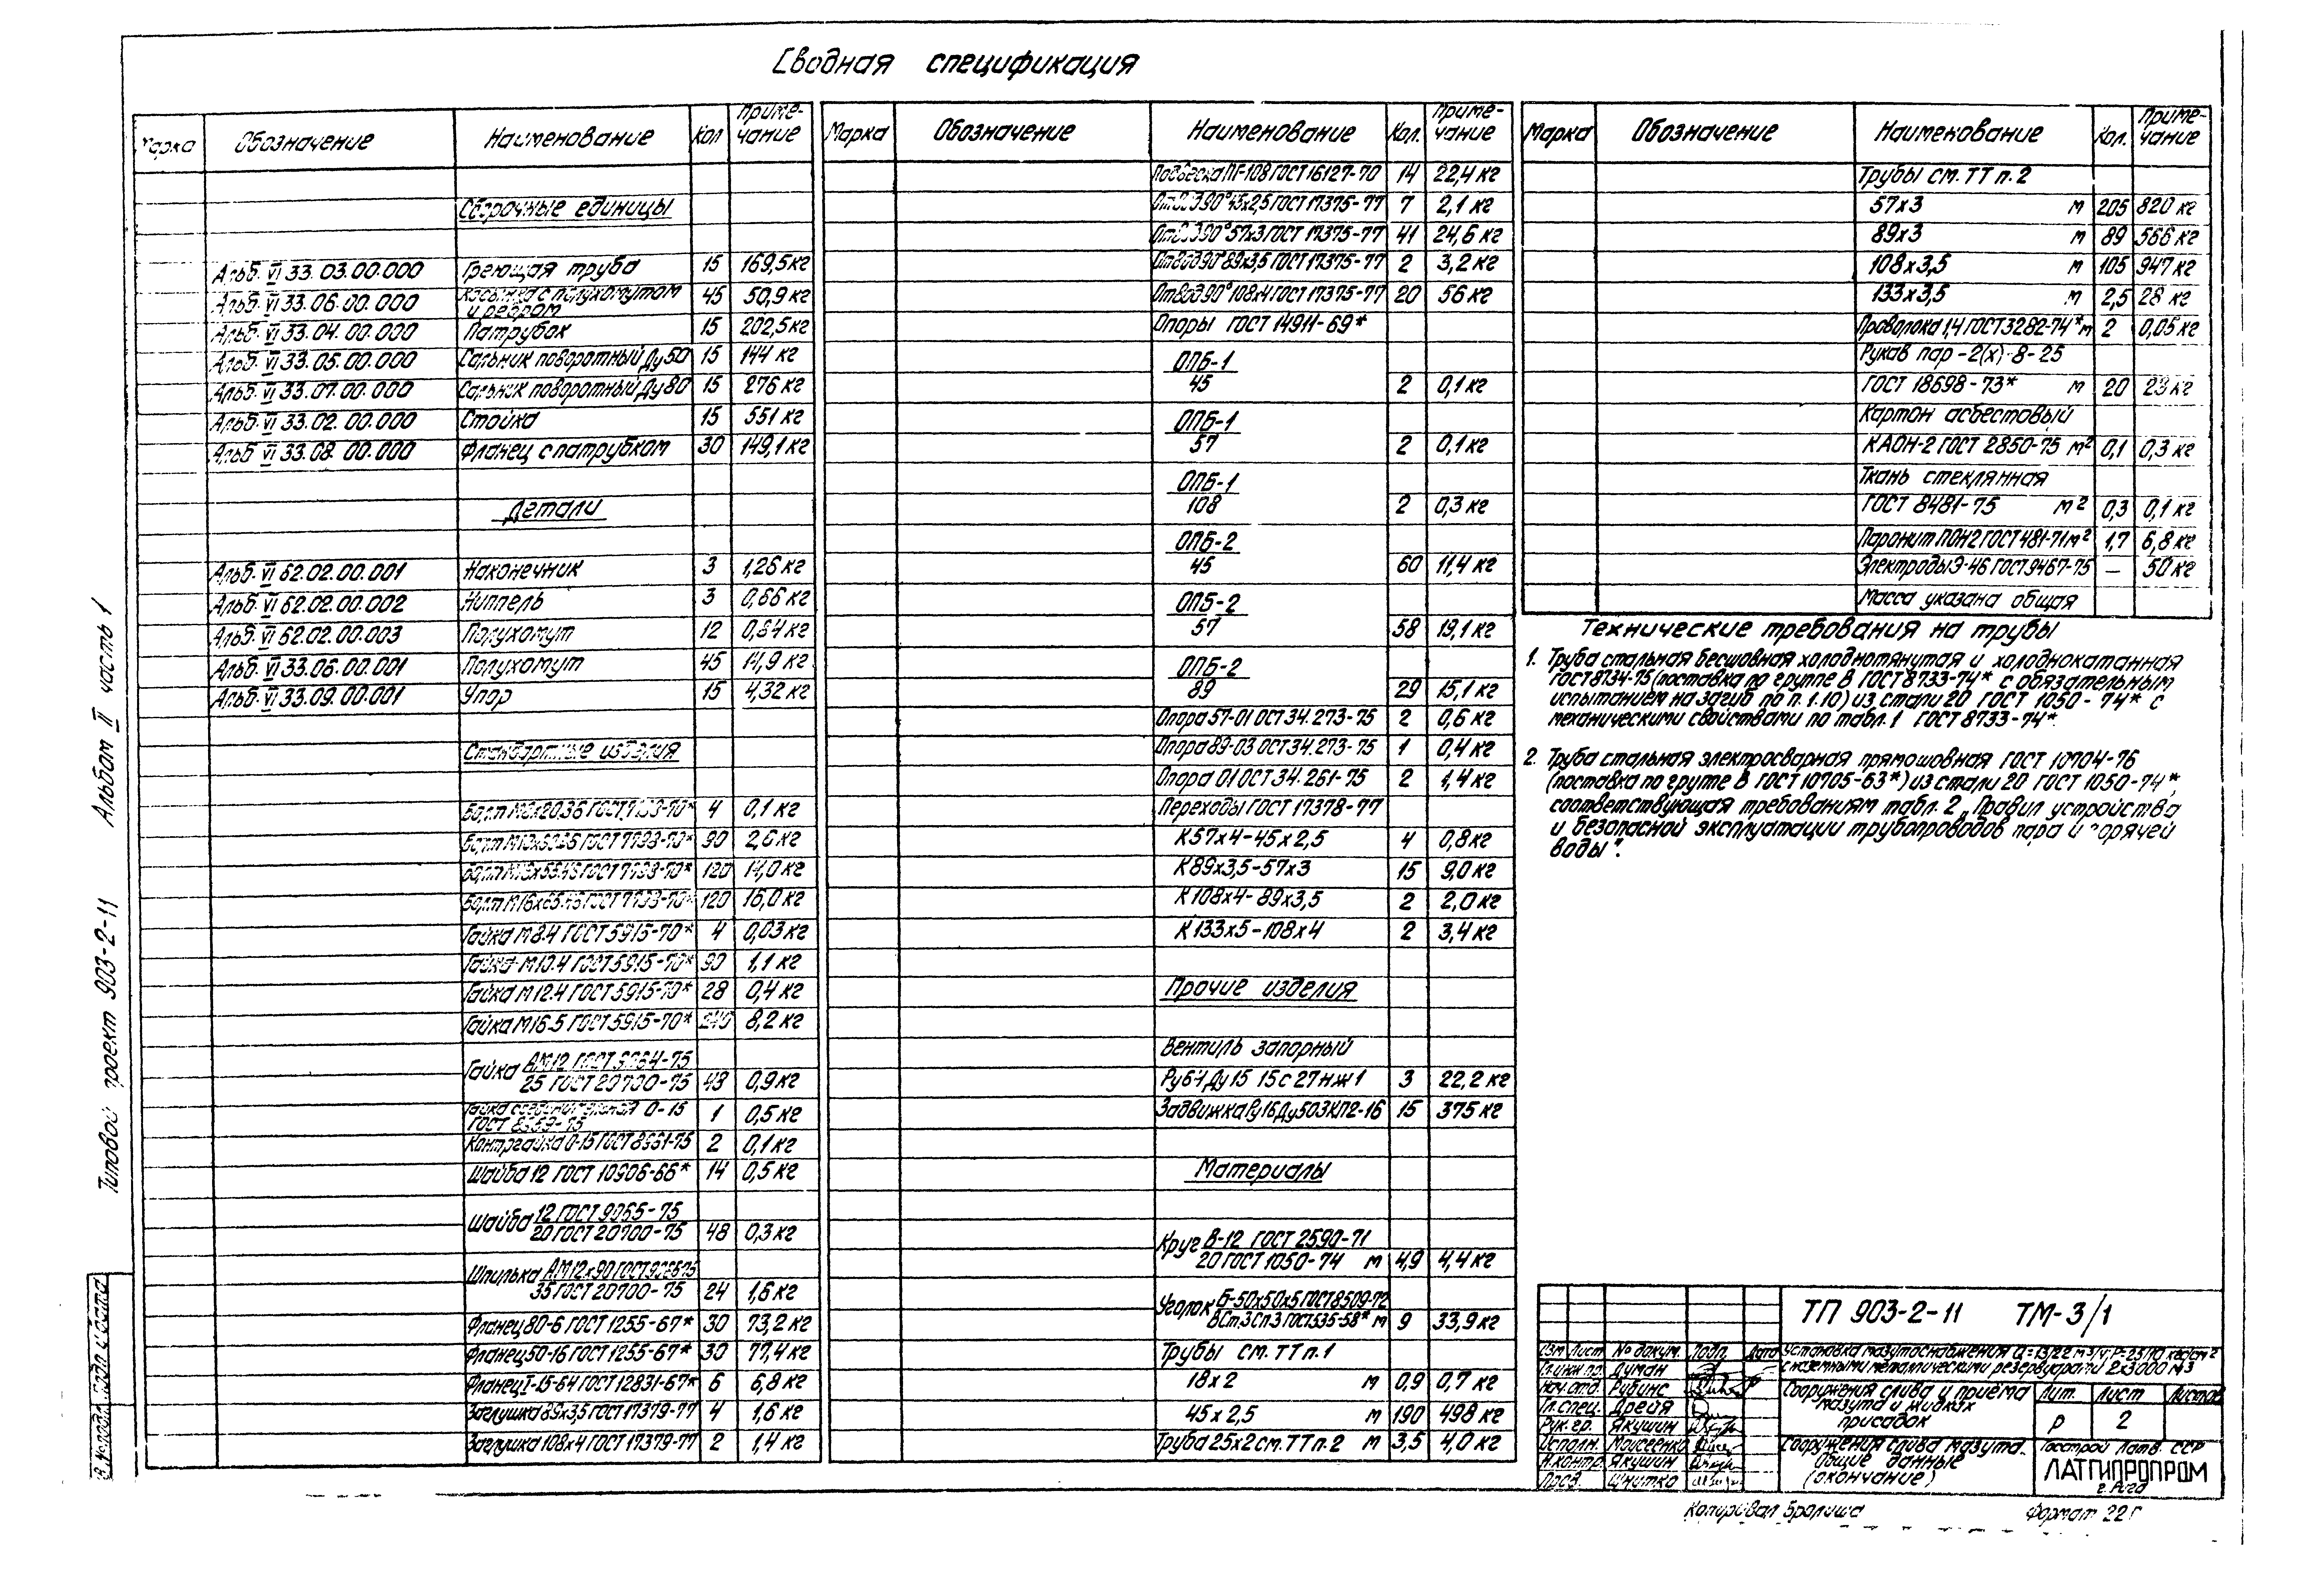 Сводная спецификация
Марка Обозначение Наименование Кол Примечание
Сборочные единицы
Альб. VI 33.03.00.000 Греющая труба 15 169,5кг
Альб. VI 33.06.00.000 Косынка с полухомутом и ребром 45 50,9кг
Альб. VI 33.04.00.000 Патрубок 15 202,5кг
Альб. VI 33.05.00.000 Сальник поворотный Ду50 15 144 кг
Альб. VI 33.07.00.000 Сальник поворотный Ду80 15 276 кг
Альб. VI 33.02.00.000 Стойка 15 551 кг
Альб VI 33.08.00.000 Фланец с патрубком 30 149,1кг
Детали
Альб. VI 62.02.00.001 Наконечник 3 1,26кг
Альб. VI 62.02.00.002 Ниппель 3 0,66кг
Альб. VI 62.02.00.003 Полухомут 12 0,84кг
Альб. VI 33.06.00.001 Полухомут 45 14,9кг
Альб. VI 33.09.00.001 Упор 15 4,32кг
Стандартные изделия
Болт М8х20.36 ГОСТ 7798-70* 4 0,1 кг
Болт ГОСТ 7798-70* 90 2,6кг
Болт ГОСТ 7798-70* 120 14,0кг
Болт М16х65.46 ГОСТ 7798-70* 120 16,0кг
Гайка М8.4 ГОСТ 5915-70* 4 0,03кг
Гайка М10.4 ГОСТ 5915-70* 90 1,1 кг
Гайка М12.4 ГОСТ 5915-70* 28 0,4 кг
Гайка М16.5 ГОСТ 5915-70* 240 8,2кг
АМ12 ГОСТ 9064-75
Гайка 25 ГОСТ 20700-75 48 0,9кг
Гайка соединительная 0-15 1 0,5кг
ГОСТ 8959-75
Контргайка 0-15 ГОСТ 8961-75 2 0,1кг
Шайба 12 ГОСТ 10906-66* 14 0,5кг
Шайба 12 ГОСТ 9065-75
20 ГОСТ 20700-75 48 0,3кг
Шпилька АМ12х90 ГОСТ
35 ГОСТ 20700-75 24 1,6кг
Фланец 80-6 ГОСТ 1255-67* 30 73,2кг
Фланец 50-16 ГОСТ 1255-67* 30 77,4кг
Фланец I-15-64 ГОСТ 12831-67* 6 6,8кг
Заглушка 89х3,5 ГОСТ 17379-77 4 1,6кг
Заглушка 108х4 ГОСТ 17379-77 2 1,4 кг
Марка Обозначение Наименование Кол. Примечание
Подвеска ПГ-108 ГОСТ 16127-70 14 22,4кг
Отвод 90° 45х2,5 ГОСТ 17375-77 7 2,1кг
Отвод 90° 57х3 ГОСТ 17375-77 41 24,6кг
Отвод 90° 89х3,5 ГОСТ 17375-77 2 3,2кг
Отвод 90° 108х4 ГОСТ 17375-77 20 56кг
Опоры ГОСТ 14911-69*
ОПБ-1
45 2 0,1кг
ОПБ-1
57 2 0,1кг
ОПБ-1
108 2 0,3кг
ОПБ-2
45 60 11,4кг
ОПБ-2
57 58 19,1кг
ОПБ-2
89 29 15,1кг
Опора 57-01 ОСТ 34.273-75 2 0,6кг
Опора 89-03 ОСТ 34.273-75 1 0,4кг
Опора 01 ОСТ 34.261-75 2 1,4кг
Переходы ГОСТ 17378-77
К57х4-45х2,5 4 0,8кг
К89х3,5-57х3 15 9,0кг
К108х4-89х3,5 2 2,0кг
К133х5-108х4 2 3,4кг
Прочие изделия
Вентиль запорный
Ру64 Ду15 15с27нж1 3 22,2кг
Задвижка Ру16 Ду50 ЗКЛ2-16 15 375кг
Материалы
Круг В-12 ГОСТ 2590-71
20 ГОСТ 1050-74 м 4,9 4,4кг
Уголок Б-50х50х5 ГОСТ 8509-72
ВСт.3Сп3 ГОСТ 535-58* м 9 33,9кг
Трубы см. ТТ п.1
18х2 м 0,9 0,7кг
45х2,5 м 190 498кг
Труба 25х2 см. ТТ п.2 м 3,5 4,0кг
Марка Обозначение Наименование Кол. Примечание
Трубы см. ТТ п.2
57х3 м 205 820кг
89х3 м 89 566кг
108х3,5 м 105 947кг
133х3,5 м 2,5 28кг
Проволока 1,4 ГОСТ 3282-74* м 2 0,05кг
Рукав пар-2(х)-8-25
ГОСТ 18698-73* м 20 23кг
Картон асбестовый
КАОН-2 ГОСТ 2850-75 м² 0,1 0,3кг
Ткань стеклянная
ГОСТ 8481-75 м² 0,3 0,1кг
Паронит ПОН2 ГОСТ 481-71 м² 1,7 6,8кг
Электроды Э-46 ГОСТ 9467-75 — 50кг
Масса указана общая
Технические требования на трубы
1. Труба стальная бесшовная холоднотянутая и холоднокатанная
ГОСТ 8734-75 (поставка по группе В ГОСТ 8733-74* с обязательным
испытанием на загиб по п.1.10) из стали 20 ГОСТ 1050-74* с
механическими свойствами по табл.1 ГОСТ 8733-74*.
2. Труба стальная электросварная прямошовная ГОСТ 10704-76
(поставка по группе В ГОСТ 10705-63*) из стали 20 ГОСТ 1050-74*,
соответствующая требованиям табл.2 „Правил устройства
и безопасной эксплуатации трубопроводов пара и горячей
воды".
ТП 903-2-11 ТМ-3/1
Изм Лист № докум. Подп. Дата
Гл.инж.пр. Думан
Нач.отд. Рубинс
Гл.спец. Дрейя
Рук.гр. Якушин
Исполн. Моисеенко
Н.контр. Якушин
Пров. Шнитко
Установка мазутоснабжения Q=13/22 м3/ч; P=25/10 кгс/см2
с наземными металлическими резервуарами 2х3000 м3
Сооружения слива и приёма
мазута и жидких
присадок
Лит. Лист Листов
Р 2
Сооружения слива мазута.
Общие данные
(окончание)
Госстрой Латв. ССР
ЛАТГИПРОПРОМ
г. Рига
Копировал Формат 22Г
Типовой проект 903-2-11 Альбом II часть 1